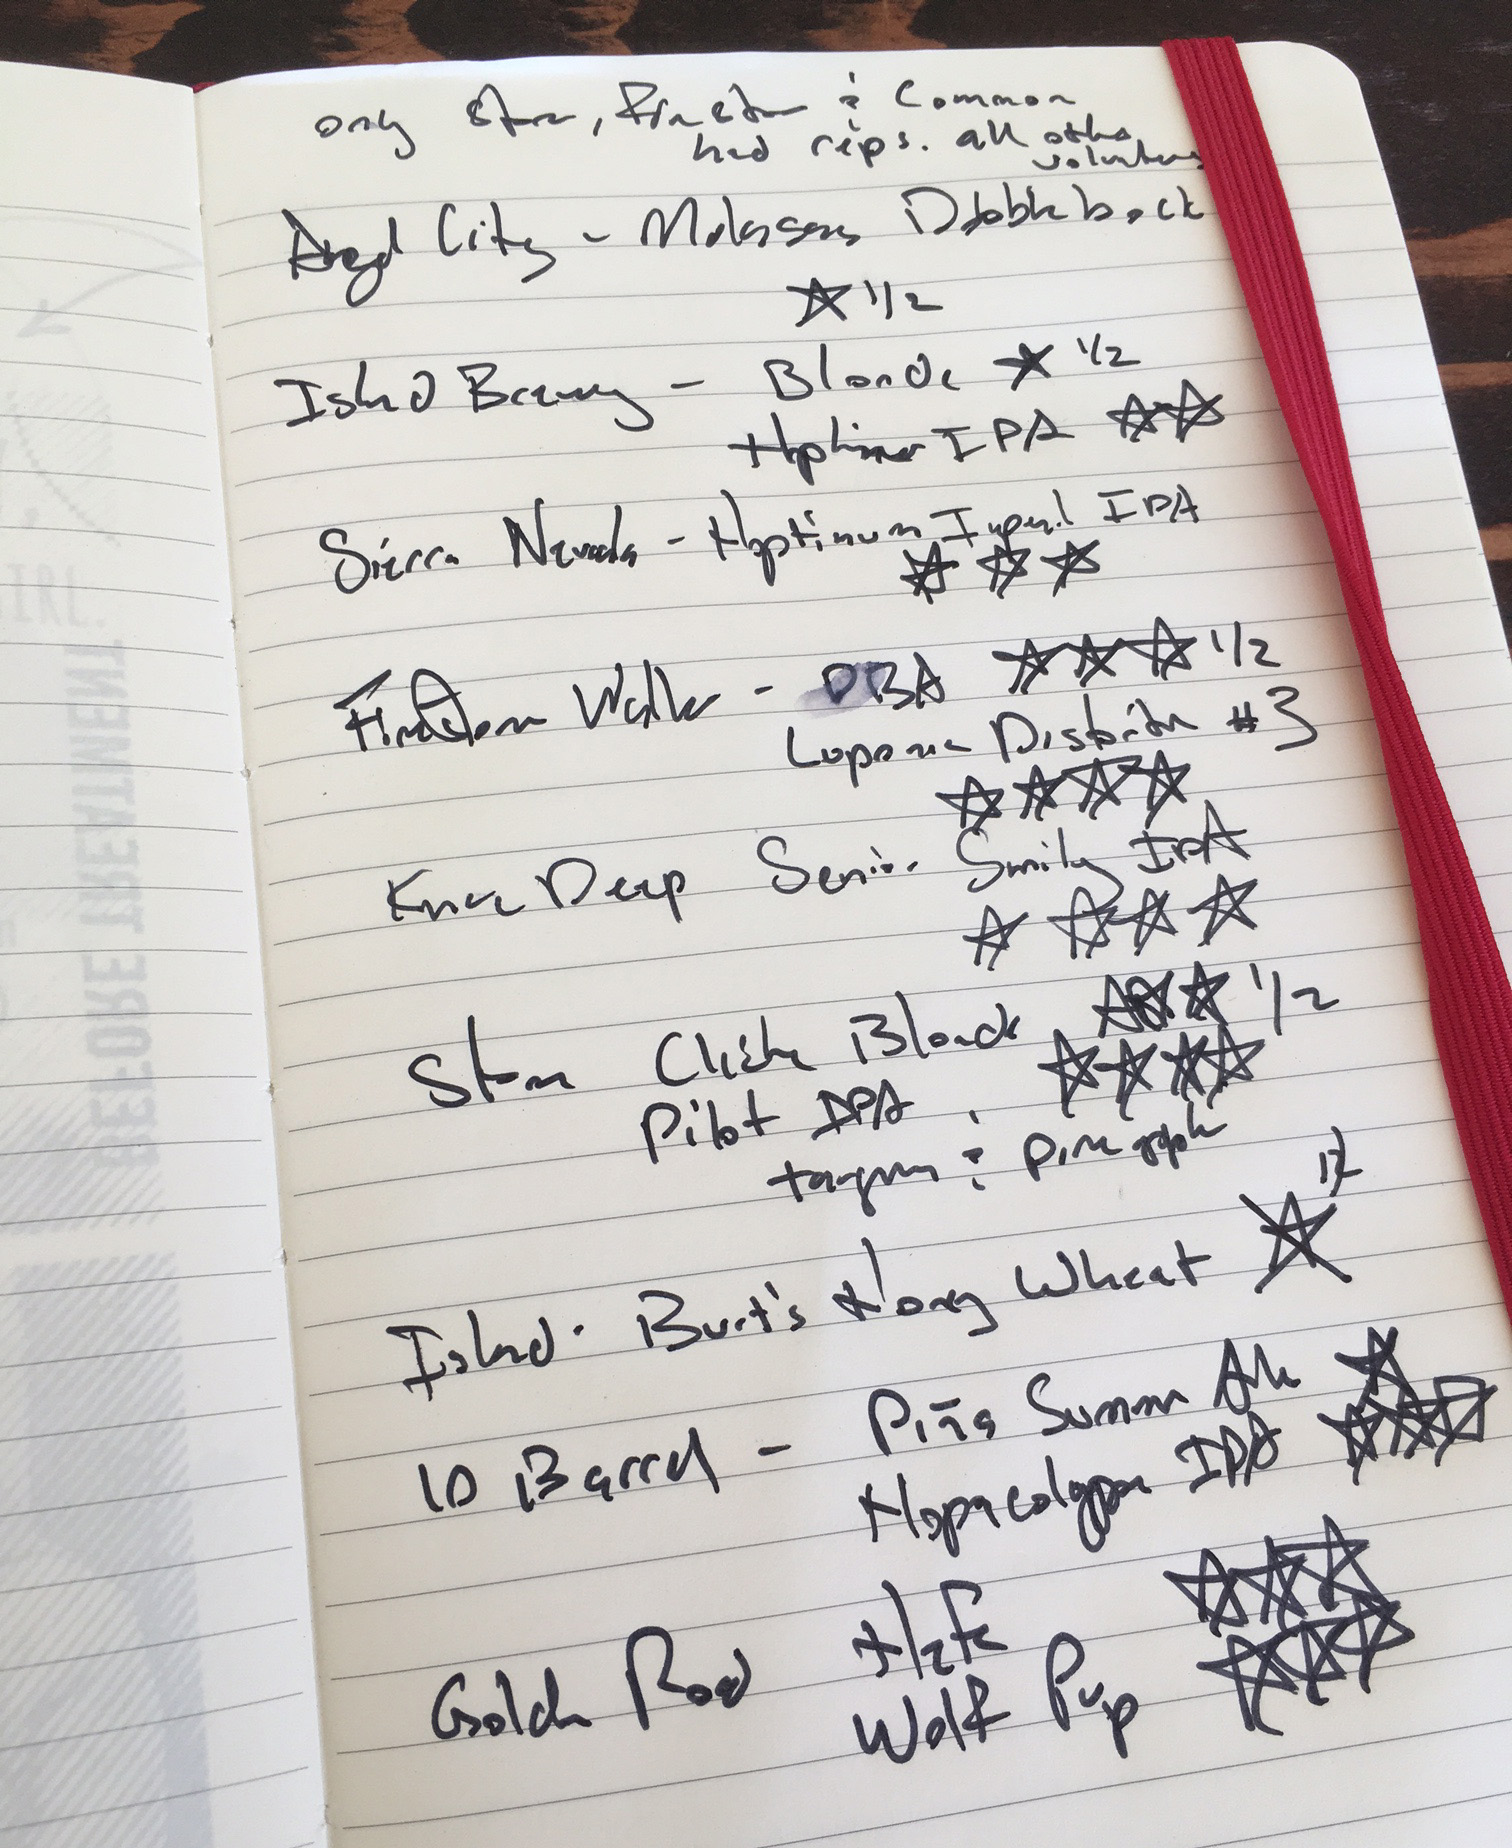 only Stone, Firestone & Common
had reps. all other
volunteers
Angel City - Molasses Dobblebock
☆ 1/2
Island Brewing - Blonde ☆ 1/2
Hoptimer IPA ☆☆
Sierra Nevada - Hoptinum Imperial IPA
☆☆☆
Firestone Walker - DBA ☆☆☆ 1/2
Luponic Distortion #3
☆☆☆☆
Knee Deep Senior Smily IPA
☆☆☆☆
Stone Cliché Blonde ☆☆☆ 1/2
Pilot IPA ☆☆☆☆
& pineapple
Island - Burt's Honey Wheat ☆ 1/2
10 Barrel - Piña Summer Ale ☆
Hopacolypse IPA ☆☆☆
Golden Road Hefe ☆☆☆
Wolf Pup ☆☆☆
BEFORE TREATMENT